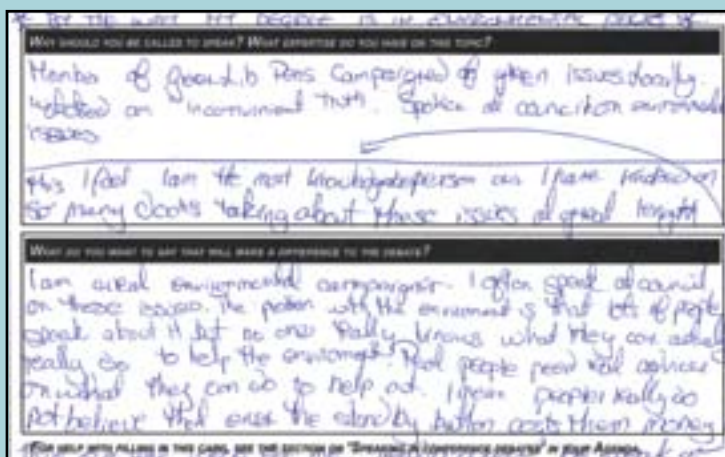 * By the way my degree is in environmental
WHY SHOULD YOU BE CALLED TO SPEAK? WHAT EXPERTISE DO YOU HAVE ON THIS TOPIC?
Member of Green Lib Dems Campaigned of green issues locally.
on "inconvinient Truth". Spoken at council on
issues
I feel I am the most person as I have knocked on
so many doors talking about these issues at great lenght
WHAT DO YOU WANT TO SAY THAT WILL MAKE A DIFFERENCE TO THE DEBATE?
I am environmental campaigner. I often speak at council
on these issues. The with the enviroment is that lots of people
speak about it but no one really knows what they can
really do to help the enviroment. Real people need real advice
on what they can do to help out. I mean people really do
not believe that even the standby button costs them money
FOR HELP WITH FILLING IN THIS CARD, SEE THE SECTION ON "SPEAKING IN CONFERENCE DEBATES" IN YOUR AGENDA.